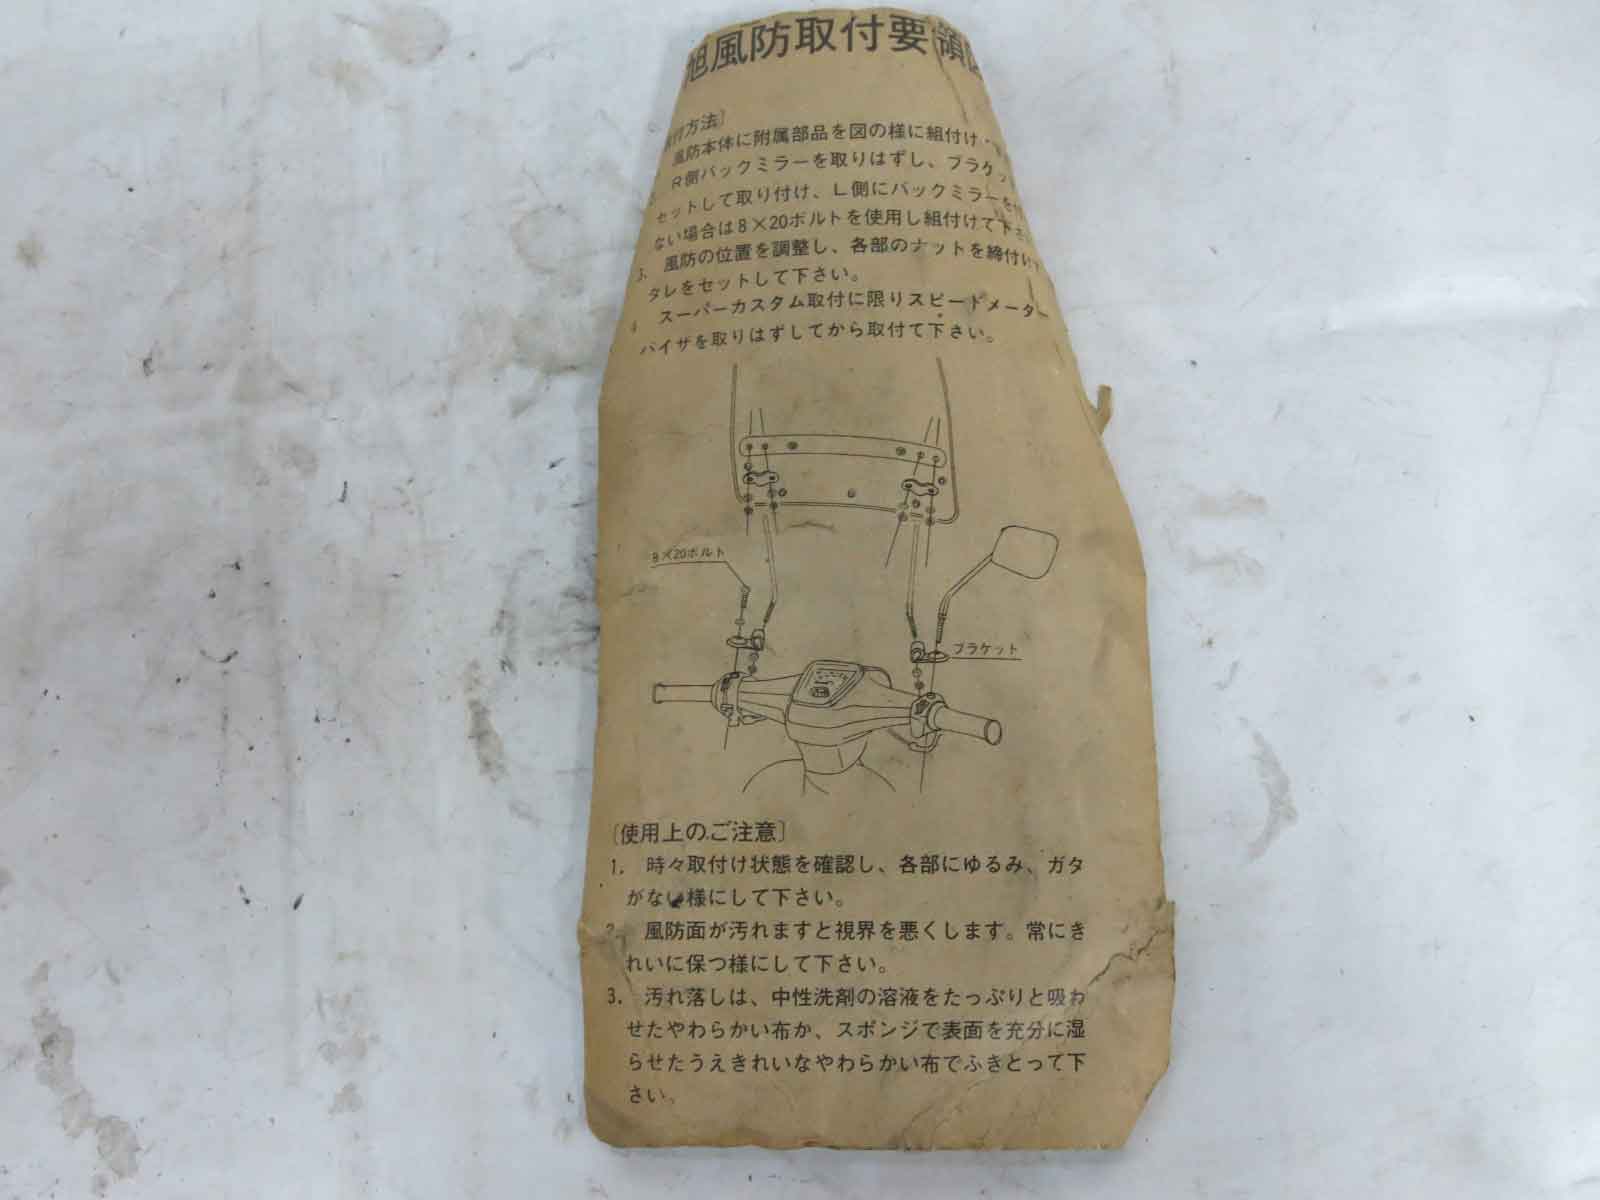 旭風防取付要領
付方法〕
風防本体に附属部品を図の様に組付け
R側バックミラーを取りはずし、ブラケッ
セットして取り付け、L側にバックミラーを付
ない場合は8×20ボルトを使用し組付けて下さ
3. 風防の位置を調整し、各部のナットを締付け
タレをセットして下さい。
4 スーパーカスタム取付に限りスピードメーター
バイザを取りはずしてから取付て下さい。
8×20ボルト
ブラケット
〔使用上のご注意〕
1. 時々取付け状態を確認し、各部にゆるみ、ガタ
がない様にして下さい。
2. 風防面が汚れますと視界を悪くします。常にき
れいに保つ様にして下さい。
3. 汚れ落しは、中性洗剤の溶液をたっぷりと吸わ
せたやわらかい布か、スポンジで表面を充分に湿
らせたうえきれいなやわらかい布でふきとって下
さい。